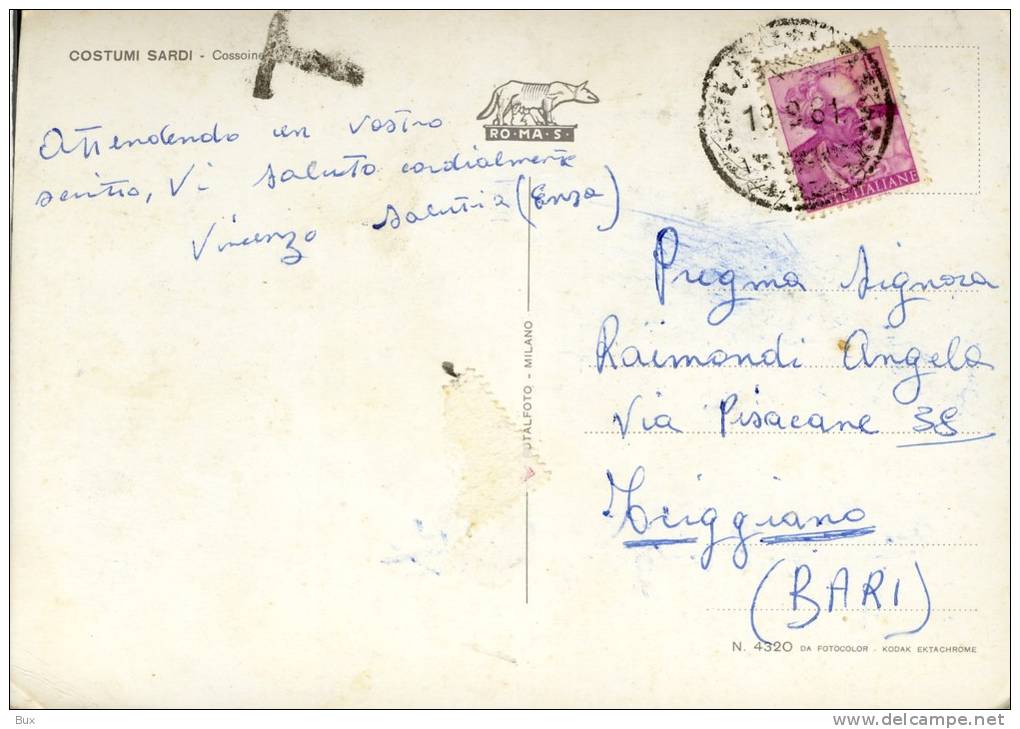 COSTUMI SARDI - Cossoine
T
Attendendo un vostro
scritto, Vi saluto cordialmente
Vincenzo (Enzo)
RO·MA·S·
19.9.61
E ITALIANE
OTALFOTO - MILANO
Preg.ma Signora
Raimondi Angela
Via Pisacane 38
Triggiano
(BARI)
N. 4320 DA FOTOCOLOR - KODAK EKTACHROME
Bux
http://www.delcampe.net